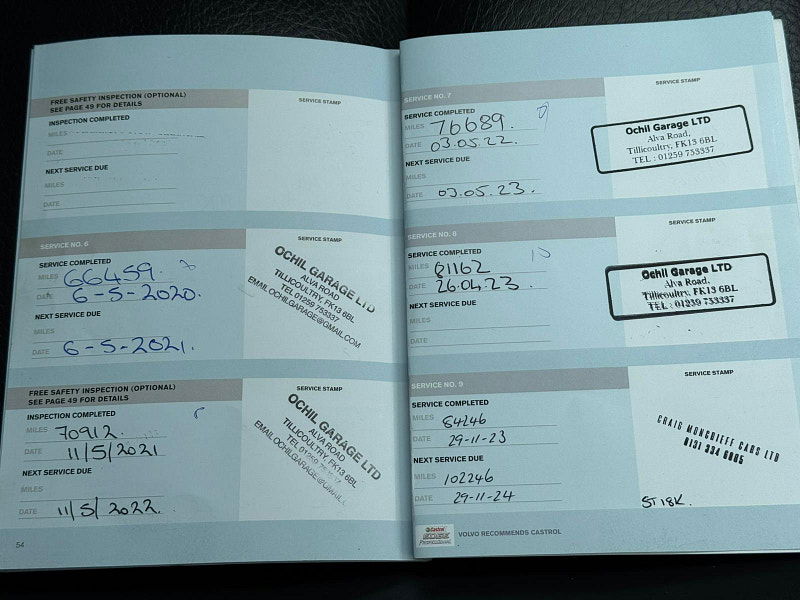 FREE SAFETY INSPECTION (OPTIONAL)
SEE PAGE 49 FOR DETAILS
SERVICE STAMP
INSPECTION COMPLETED
MILES
DATE
NEXT SERVICE DUE
MILES
DATE
SERVICE NO. 6
SERVICE STAMP
SERVICE COMPLETED
MILES 66459.
DATE 6-5-2020.
NEXT SERVICE DUE
MILES
DATE 6-5-2021.
OCHIL GARAGE LTD
ALVA ROAD
TILLICOULTRY, FK13 6BL
TEL 01259 753337
EMAIL OCHILGARAGE@GMAIL.COM
FREE SAFETY INSPECTION (OPTIONAL)
SEE PAGE 49 FOR DETAILS
SERVICE STAMP
INSPECTION COMPLETED
MILES 70912.
DATE 11/5/2021
NEXT SERVICE DUE
MILES
DATE 11/5/2022.
OCHIL GARAGE LTD
ALVA ROAD
TILLICOULTRY, FK13 6BL
TEL 01259
EMAIL OCHILGARAGE@GMAIL
54
SERVICE NO. 7
SERVICE STAMP
SERVICE COMPLETED
MILES 76689.
DATE 03.05.22.
NEXT SERVICE DUE
MILES
DATE 03.05.23.
Ochil Garage LTD
Alva Road,
Tillicoultry, FK13 6BL
TEL : 01259 753337
SERVICE NO. 8
SERVICE STAMP
SERVICE COMPLETED
MILES 81162
DATE 26.04.23.
NEXT SERVICE DUE
MILES
DATE
Ochil Garage LTD
Alva Road,
Tillicoultry, FK13 6BL
TEL : 01259 753337
SERVICE NO. 9
SERVICE STAMP
SERVICE COMPLETED
MILES 84246
DATE 29-11-23
NEXT SERVICE DUE
MILES 102246
DATE 29-11-24
CRAIG MONCRIEFF CARS LTD
0131 334 6005
ST18K.
Castrol
EDGE
PROFESSIONAL
VOLVO RECOMMENDS CASTROL